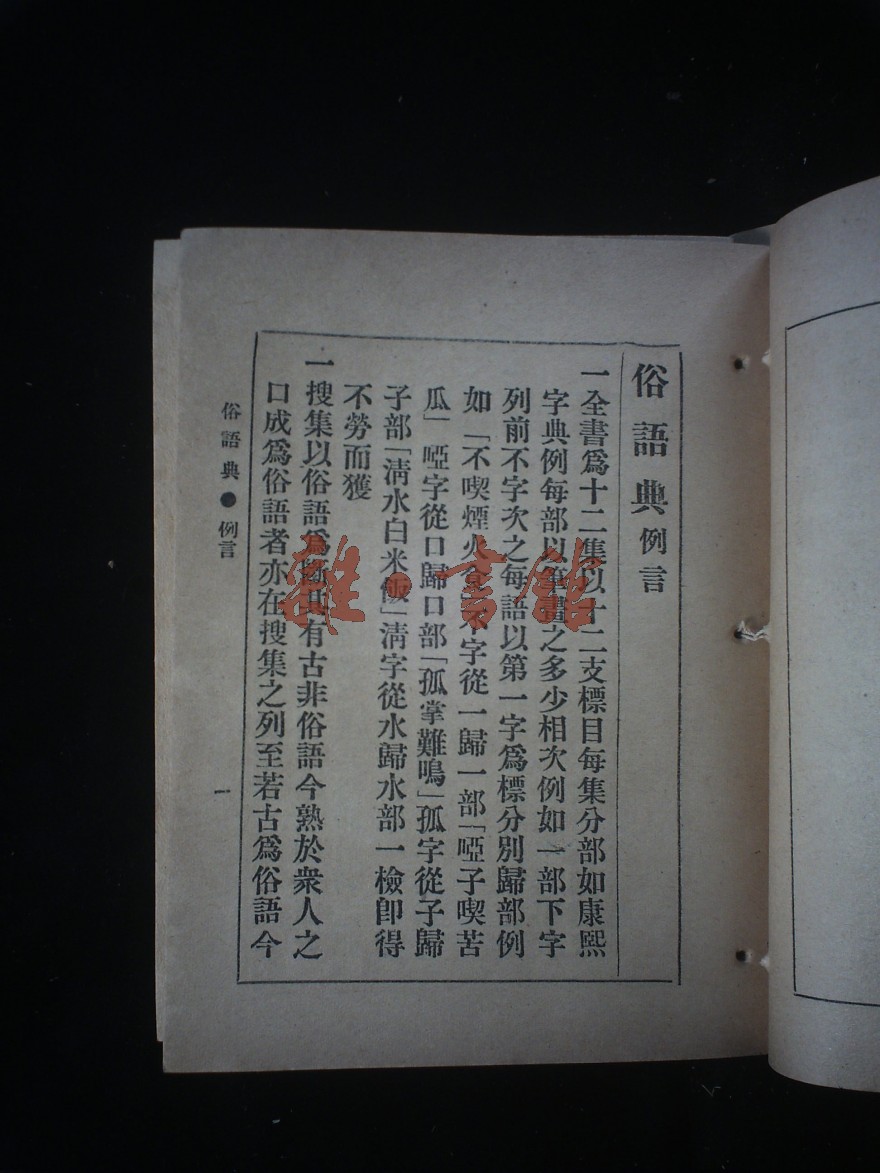 俗語典例言
一全書爲十二集以十二支標目每集分部如康熙
字典例每部以筆畫之多少相次例如一部下字
列前不字次之每語以第一字爲標分別歸部例
如「不喫煙火食」不字從一歸一部「啞子喫苦
瓜」啞字從口歸口部「孤掌難鳴」孤字從子歸
子部「淸水白米飯」淸字從水歸水部一檢卽得
不勞而獲
一搜集以俗語爲斷其有古非俗語今熟於衆人之
口成爲俗語者亦在搜集之列至若古爲俗語今
俗語典●例言
一
雜·書館